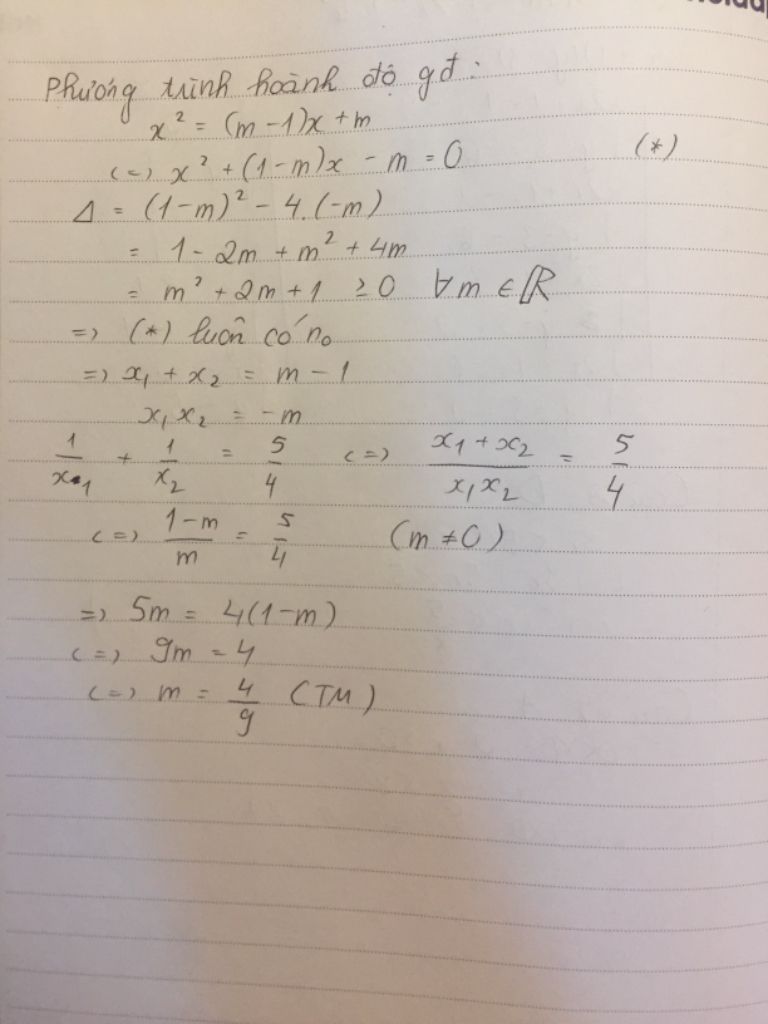 Phương trình hoành độ gđ:
x² = (m-1)x + m
<=> x² + (1-m)x - m = 0 (*)
Δ = (1-m)² - 4.(-m)
= 1 - 2m + m² + 4m
= m² + 2m + 1 ≥ 0 ∀m ∈ ℝ
=> (*) luôn có n₀
=> x₁ + x₂ = m - 1
x₁x₂ = -m
1/x₁ + 1/x₂ = 5/4 <=> (x₁ + x₂)/(x₁x₂) = 5/4
<=> (1-m)/m = 5/4 (m ≠ 0)
=> 5m = 4(1-m)
<=> 9m = 4
<=> m = 4/9 (TM)